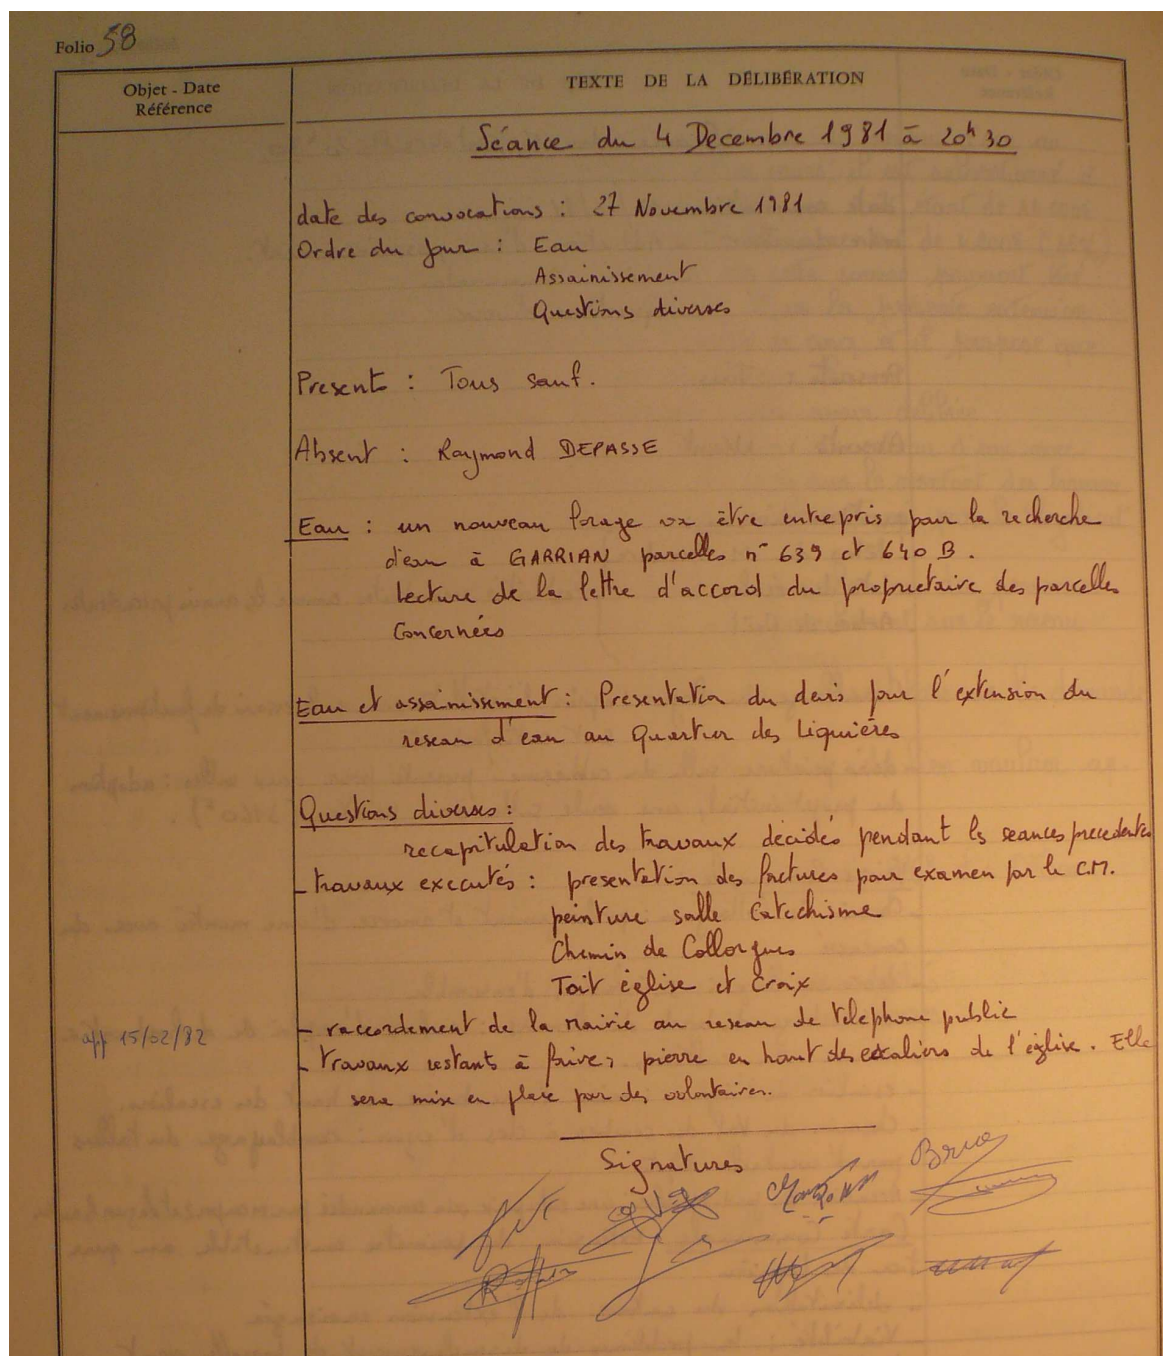 Folio 58
Objet - Date
Référence
TEXTE DE LA DÉLIBÉRATION
Séance du 4 Decembre 1981 à 20h30
date des convocations : 27 Novembre 1981
Ordre du Jour : Eau
Assainissement
Questions diverses
Present : Tous sauf.
Absent : Raymond DEPASSE
Eau : un nouveau forage va être entrepris pour la recherche
d'eau à GARRIAN parcelles n° 639 et 640 B.
Lecture de la lettre d'accord du proprietaire des parcelles
Concernées
Eau et assainissement : Presentation du devis pour l'extension du
reseau d'eau au Quartier des Liquières
Questions diverses :
recapitulation des travaux décidés pendant les seances precedentes
- travaux executés : presentation des factures pour examen par le C.M.
peinture salle Catechisme
Chemin de Collorgues
Toit église et Croix
- raccordement de la Mairie au reseau de telephone public
app 15/02/82
- Travaux restants à faire, pierre en haut des escaliers de l'église. Elle
sera mise en place par des volontaires.
Signatures